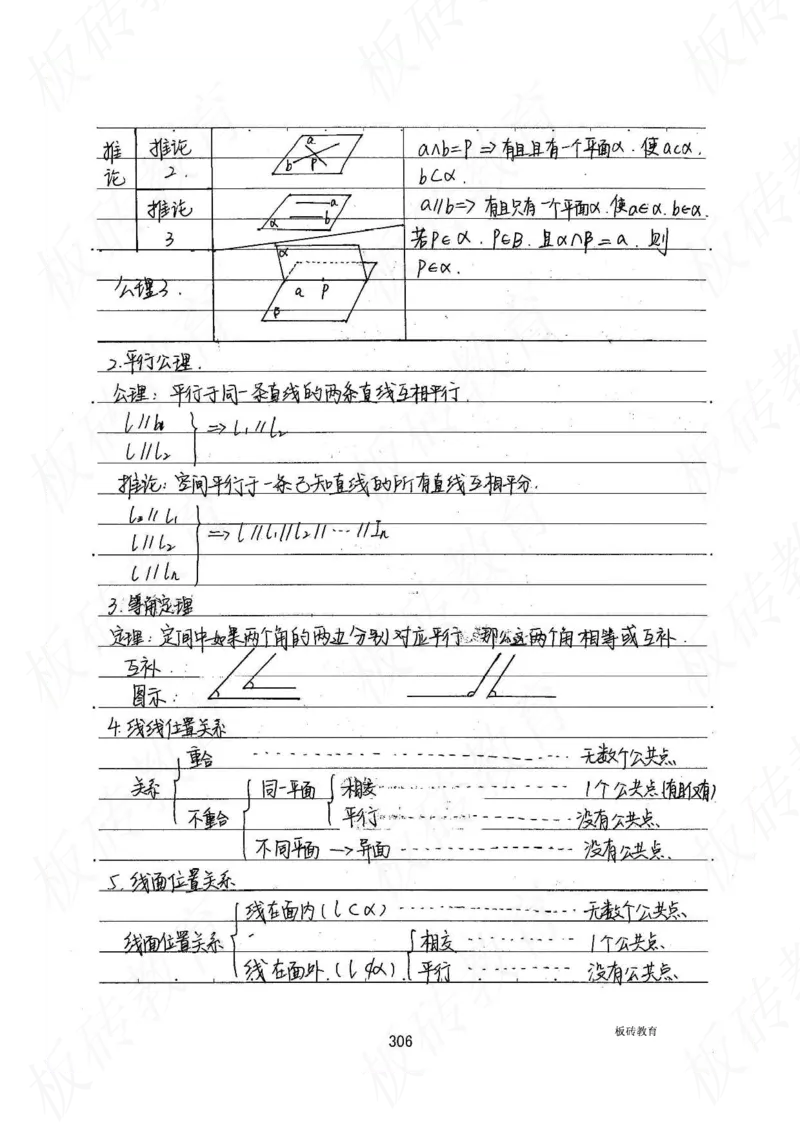 推论 推论2. a b P a∩b=P => 有且且有一个平面α. 使a⊂α.
b⊂α.
推论3 a b α a//b=> 有且只有一个平面α. 使a∈α. b∈α.
公理3. α a P β 若P∈α. P∈B. 且α∩β=a. 则
P∈α.
2.平行公理.
公理: 平行于同一条直线的两条直线互相平行.
l//l₂ } => l₁//l₂
推论: 空间平行于一条已知直线的所有直线互相平分.
l//l₁
l//l₂ } => l//l₁//l₂//…//ln
l//ln
3.等角定理
定理: 空间中如果两个角的两边分别对应平行 那么这两个角相等或互补.
互补.
图示:
4.线线位置关系
重合 无数个公共点
关系 同一平面 相交 1个公共点(有且仅有)
不重合 平行 没有公共点
不同平面 → 异面 没有公共点
5.线面位置关系
线在面内(l⊂α) 无数个公共点
线面位置关系 相交 1个公共点
线在面外.(l⊄α) 平行 没有公共点
板砖教育
306